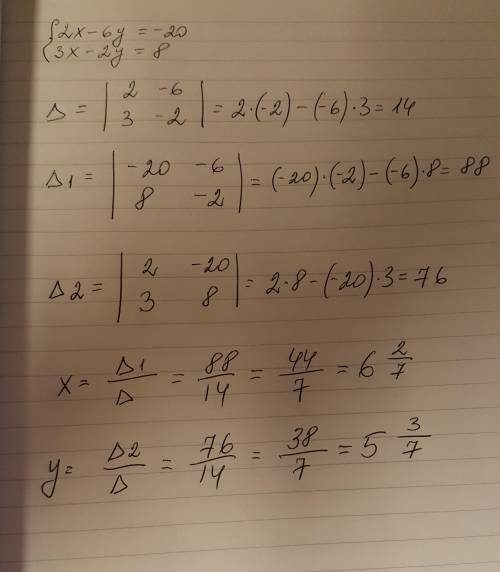 {2x-6y = -20
{3x-2y = 8
Δ = | 2 -6 |
| 3 -2 | = 2·(-2)-(-6)·3=14
Δ1 = | -20 -6 |
| 8 -2 | = (-20)·(-2)-(-6)·8= 88
Δ2 = | 2 -20 |
| 3 8 | = 2·8-(-20)·3=76
x= Δ1/Δ = 88/14 = 44/7 = 6 2/7
y= Δ2/Δ = 76/14 = 38/7 = 5 3/7